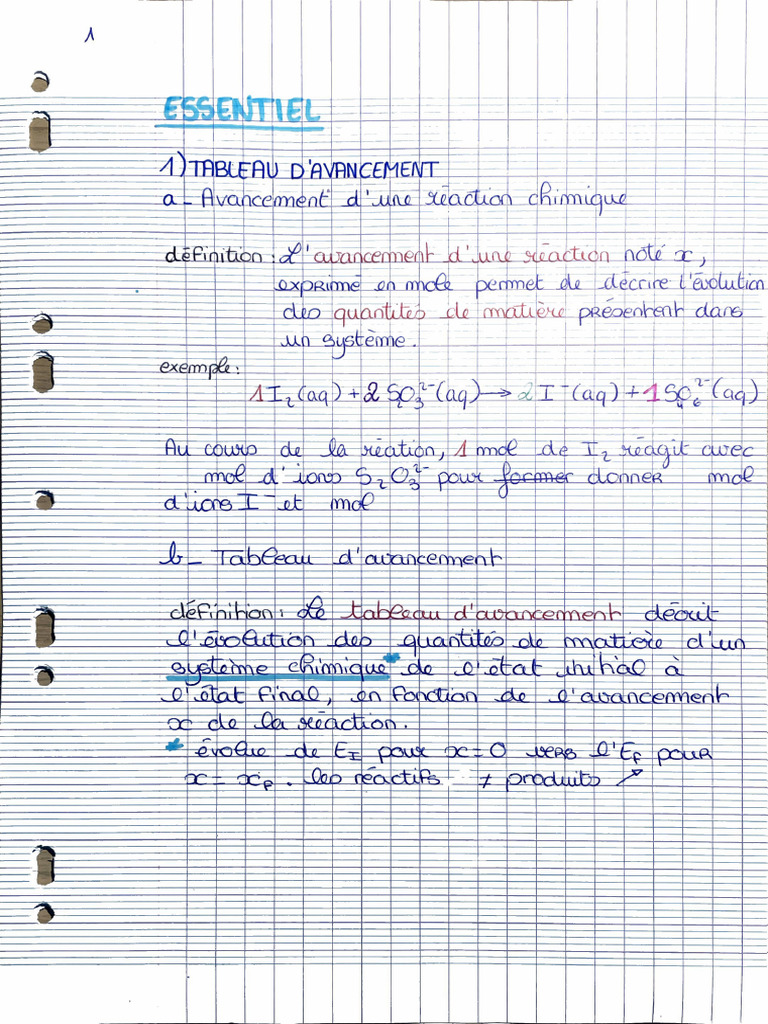 1
ESSENTIEL
1) TABLEAU D'AVANCEMENT
a - Avancement d'une réaction chimique
définition : L'avancement d'une réaction noté x,
exprimé en mole permet de décrire l'évolution
des quantités de matière présentent dans
un système.
exemple :
1 I₂(aq) + 2 S₂O₃²⁻(aq) → 2 I⁻(aq) + 1 S₄O₆²⁻(aq)
Au cours de la réation, 1 mol de I₂ réagit avec
mol d'ions S₂O₃²⁻ pour former donner mol
d'ions I⁻ et mol
b - Tableau d'avancement
définition : Le tableau d'avancement décrit
l'évolution des quantités de matière d'un
système chimique* de l'état initial à
l'état final, en fonction de l'avancement
x de la réaction.
* évolue de EI pour x = 0 vers l'EF pour
x = xF. les réactifs ≠ produits ↗